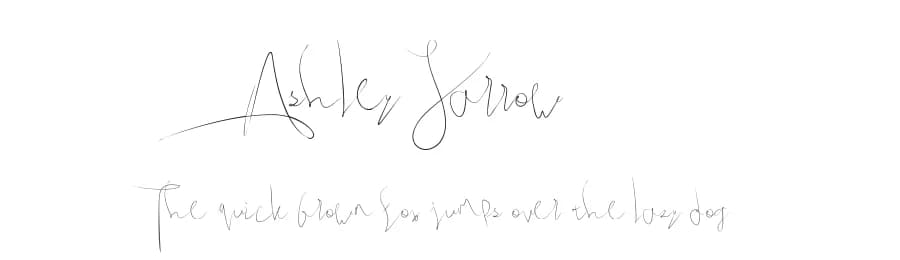 Ashley Jarrow
The quick brown fox jumps over the lazy dog